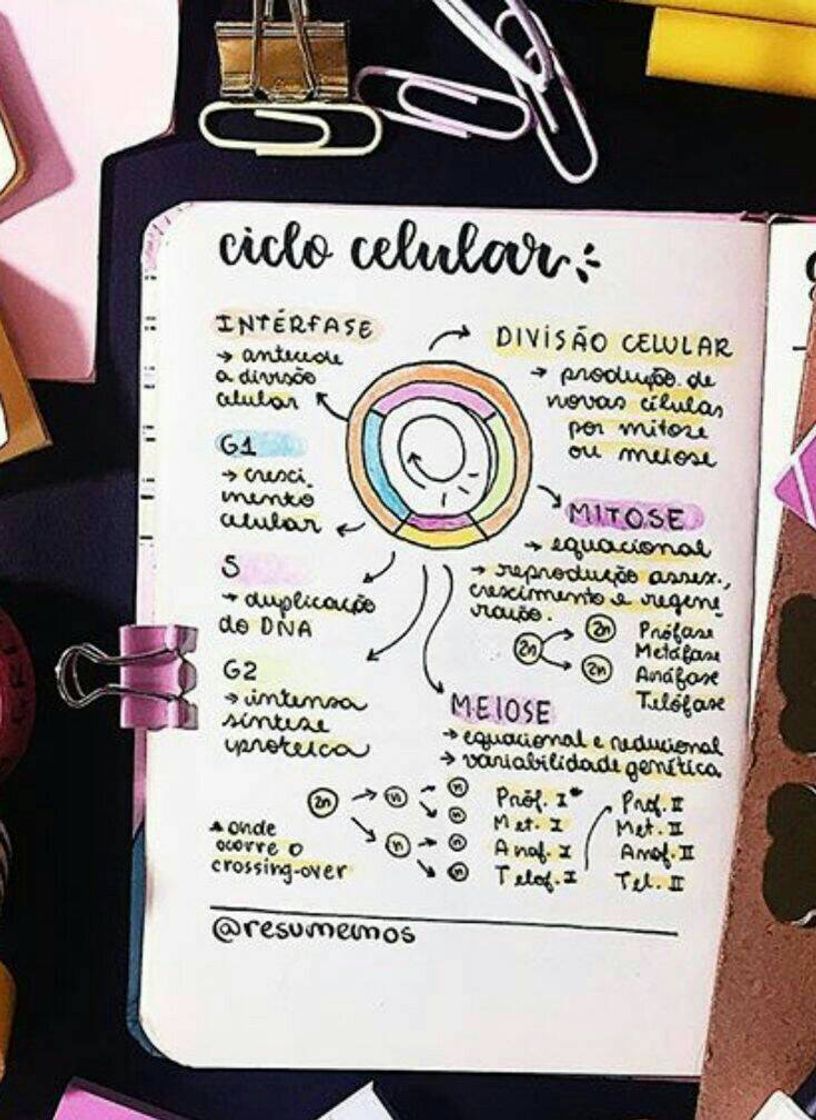 ciclo celular
INTÉRFASE
→ antecede
a divisão
celular
G1
→ cresci_
mento
celular
S
→ duplicação
do DNA
G2
→ intensa
síntese
proteica
DIVISÃO CELULAR
→ produção de
novas células
por mitose
ou meiose
MITOSE
→ equacional
→ reprodução assex.,
crescimento e regene
ração.
2n
2n
2n
Prófase
Metáfase
Anáfase
Telófase
MEIOSE
→ equacional e reducional
→ variabilidade genética
2n → n → n
n
n → n
n
Próf. I*
Met. I
Anáf. I
Telóf. I
Prof. II
Met. II
Anáf. II
Tel. II
* onde
ocorre o
crossing-over
@resumemos